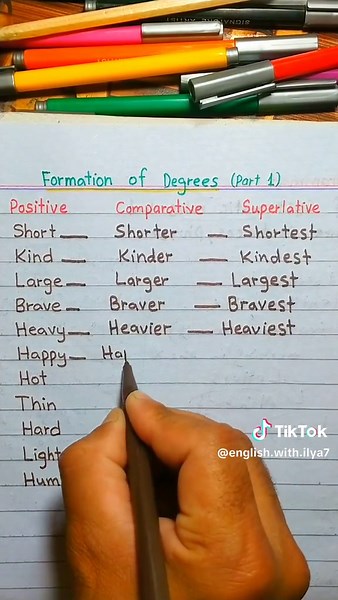 Formation of Degrees (Part 1)
Positive Comparative Superlative
Short — Shorter — Shortest
Kind — Kinder — Kindest
Large — Larger — Largest
Brave — Braver — Bravest
Heavy — Heavier — Heaviest
Happy — Ha
Hot
Thin
Hard
Light
Hum
TikTok
@english.with.ilya7